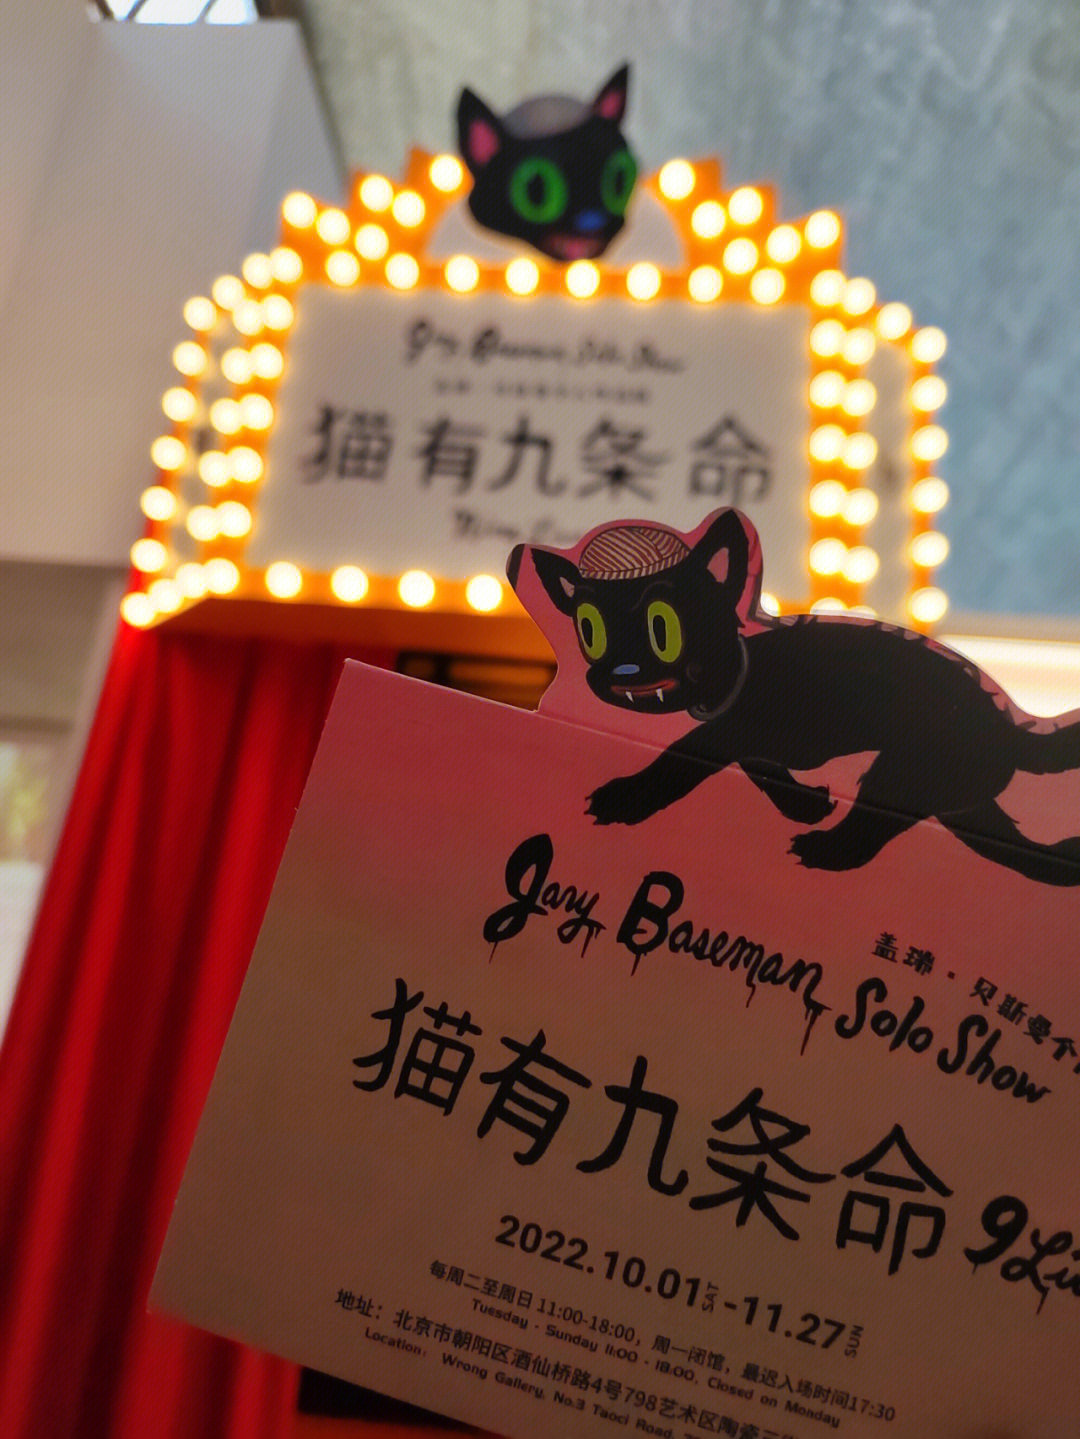 Gary Baseman Solo Show
猫有九条命
Gary Baseman Solo Show
盖瑞·贝斯曼个
猫有九条命 9 Li
2022.10.01 SAT -11.27 SUN
每周二至周日 11:00-18:00，周一闭馆，最迟入场时间17:30
Tuesday - Sunday 11:00 - 18:00, Closed on Monday
地址：北京市朝阳区酒仙桥路4号798艺术区陶瓷二
Location: Wrong Gallery, No.3 Taoci Road,